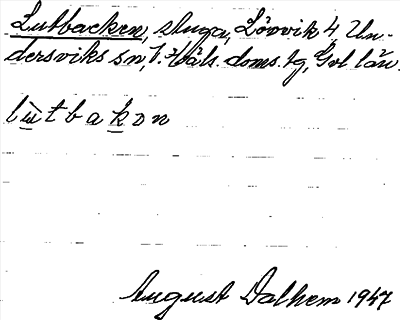 Lutbacken, stuga, Lövvik 4, Un-
dersviks sn, V. Häls. doms. tg, Gvl län.
lùtbakɔn
August Dalhem 1947